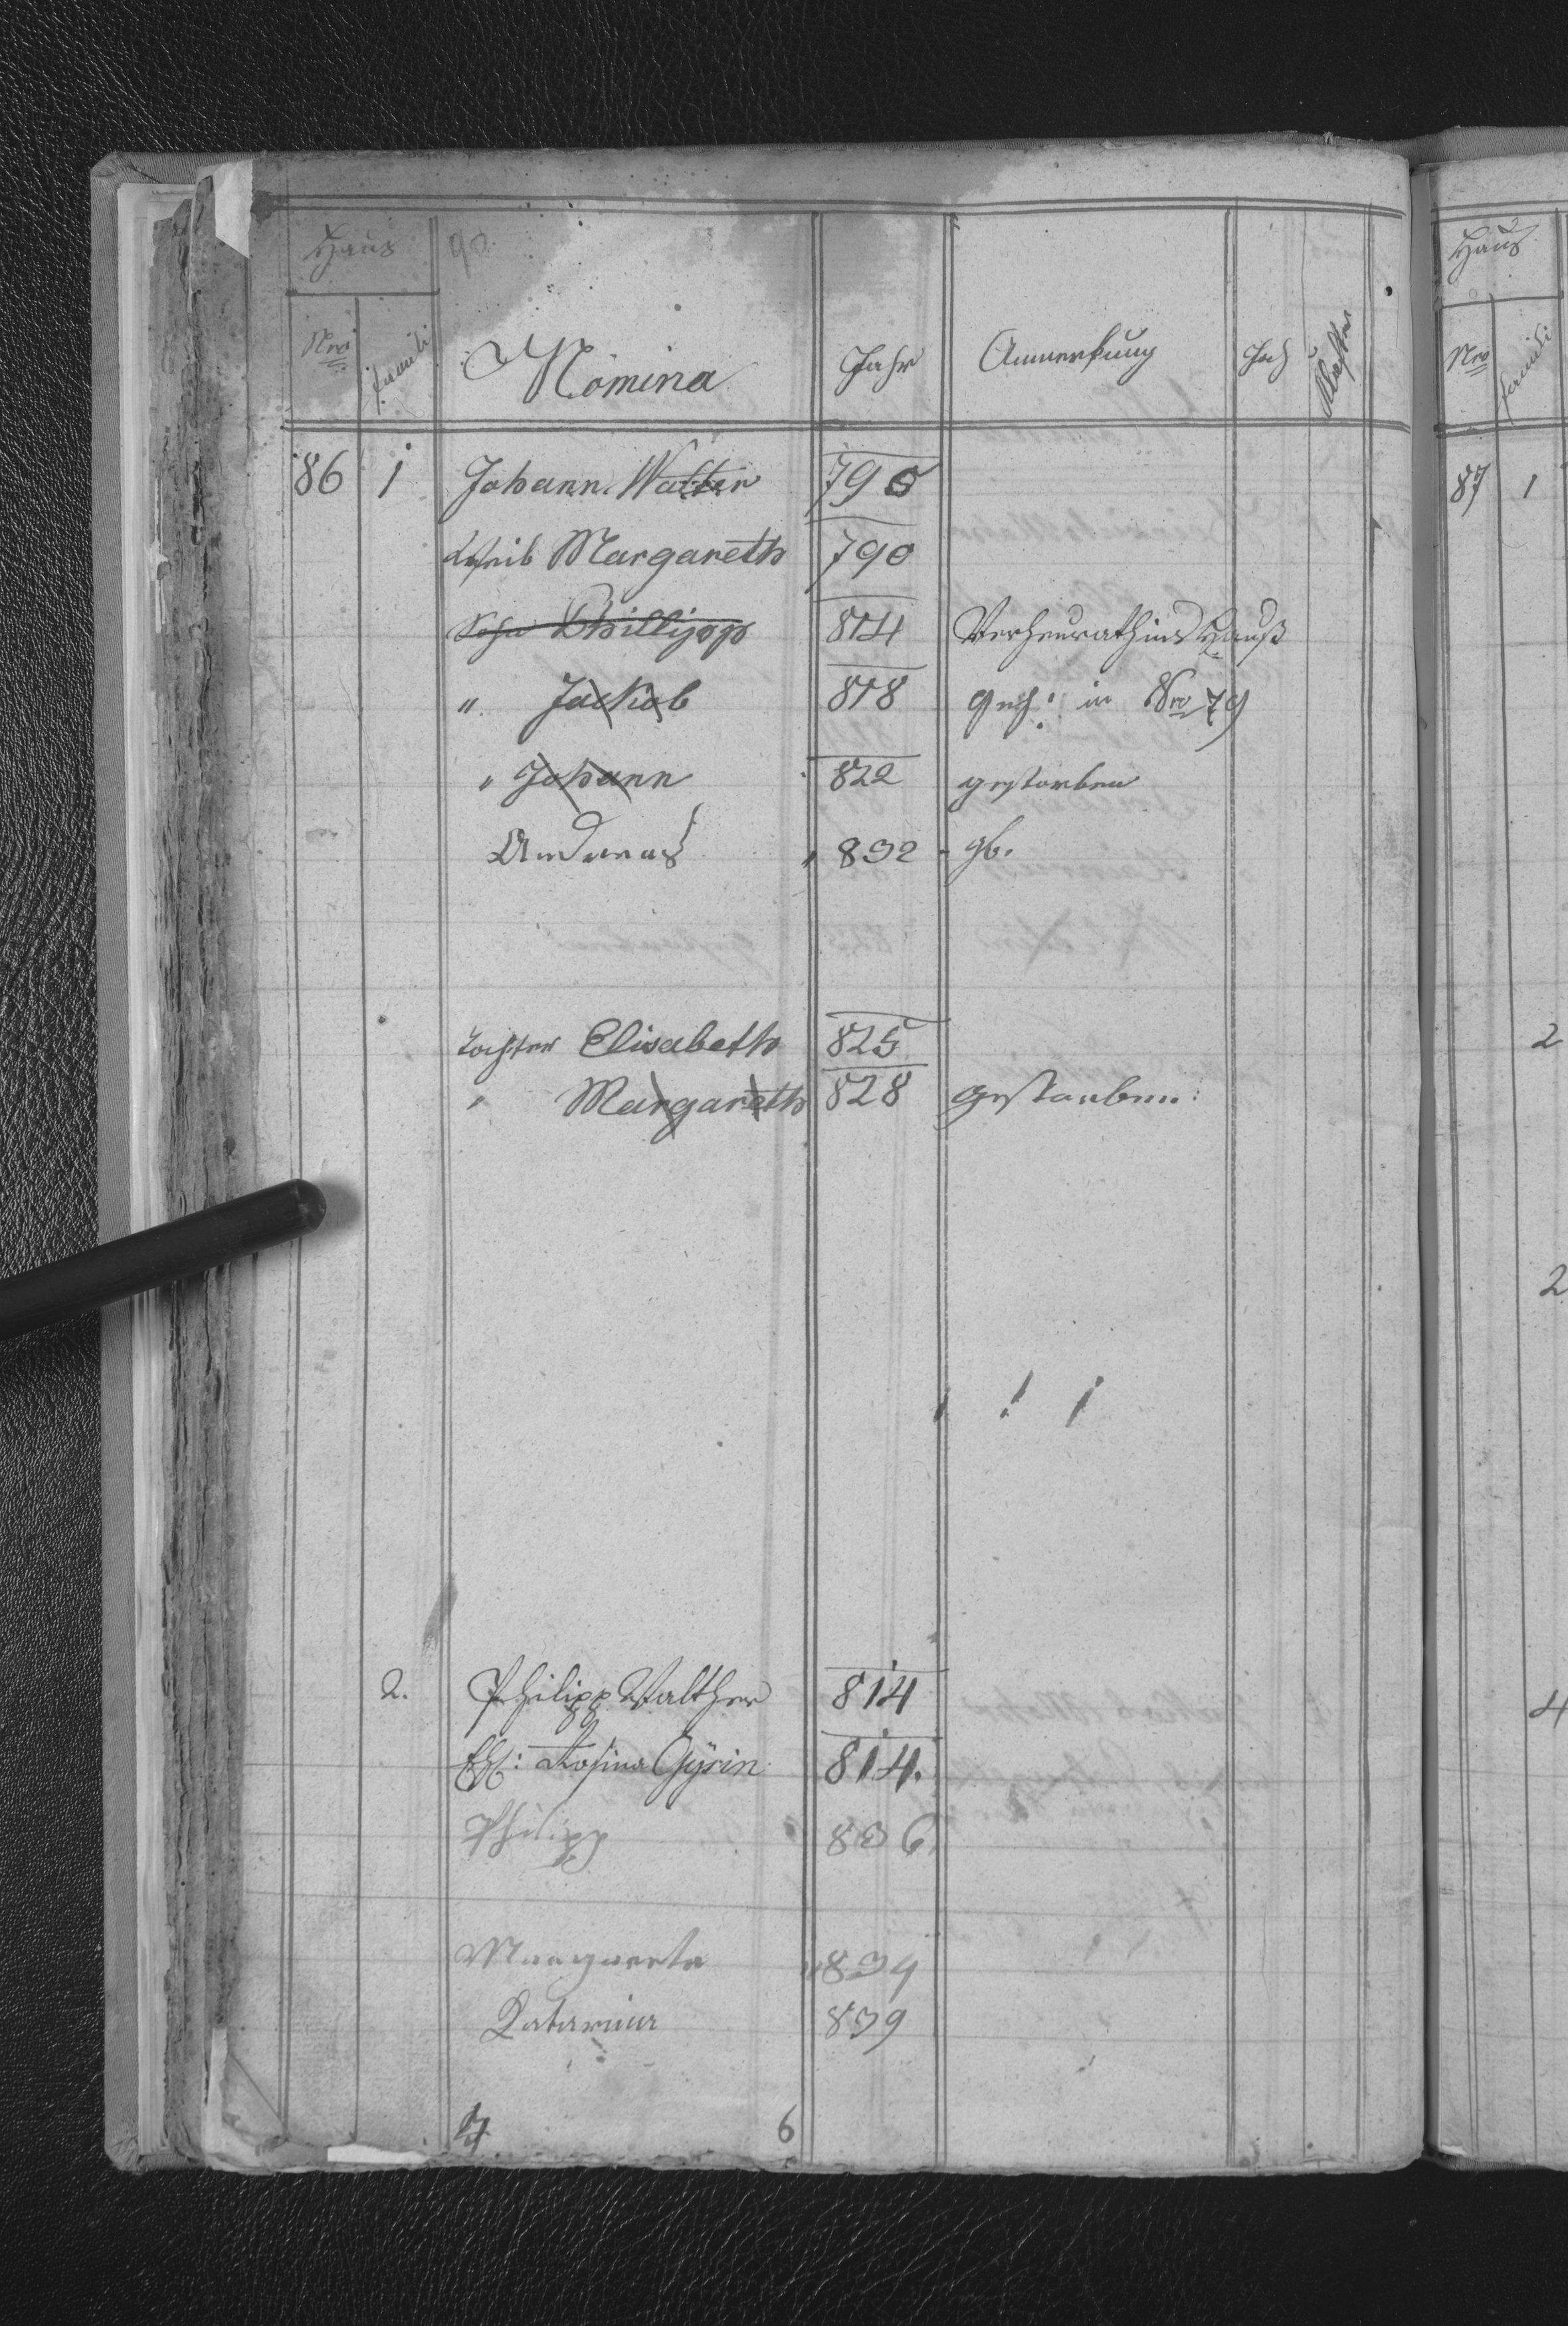 Haus 90.
Nro Famili Nomina Jahr Anmerkung Joch Klafter
86 1 Johann Walter 790
Weib Margareth 790
Sohn Phillipp 814 Verheurath ins Hauß
" Jackob 818 in Nro 79
" Johann 822 gestorben
Andreas 832 - gb.
Tochter Elisabeth 825
" Margareth 828 gestorben:
2. Philipp Walther 814
Rosina Gyïrin 814.
Philipp 836
Margareta 834
Katarina 839
6
Haus
Nro Famili
87 1
2
2
4